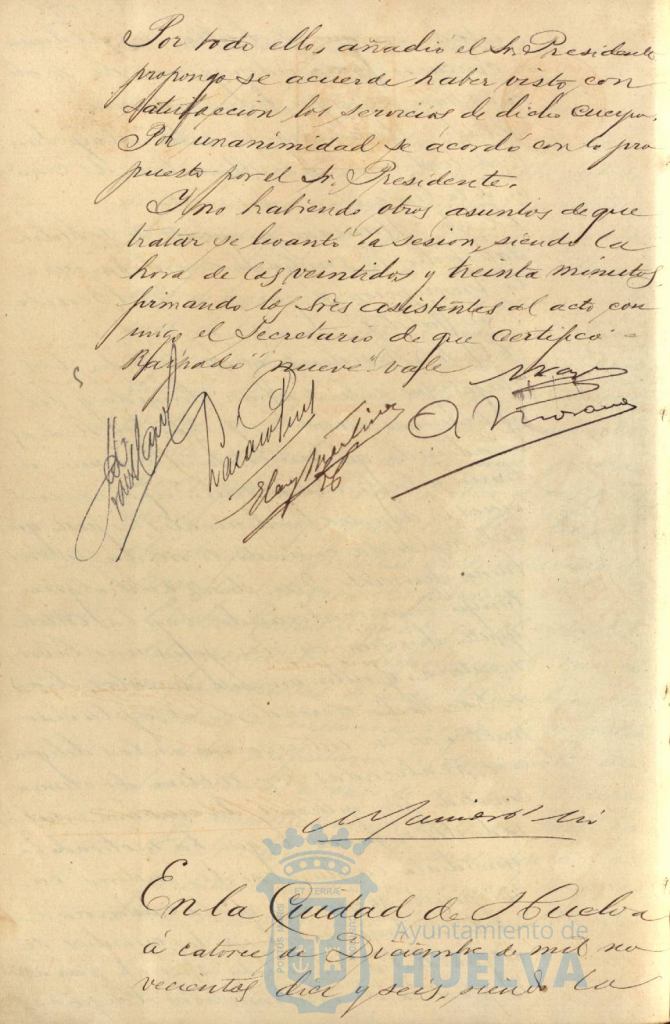 Por todo ellos añadió el Sr. Presidente
propongo se acuerde haber visto con
satisfacción los servicios de dicho cuerpo.
Por unanimidad se acordó con lo pro
puesto por el Sr. Presidente.
Y no habiendo otros asuntos de que
tratar se levantó la sesion, siendo la
hora de las veintidos y treinta minutos
firmando los Sres asistentes al acto con
migo el Secretario de que certifico =
Raspado "nueve" vale
A. Morano
Eloy Martinez
En la Ciudad de Huelva
á catorce de Diciembre de mil no
vecientos diez y seis, siendo la
PORTUS
ET TERRÆ
Ayuntamiento de
HUELVA